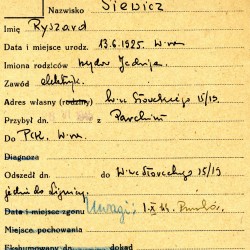 Nazwisko Siewicz
Imię Ryszard
Data i miejsce urodz. 13.6.1925. W-wa
Imiona rodziców
Zawód elektryk.
Adres własny (rodziny) W-wa Słowackiego 15/19.
Przybył dn. z Parchim
Do PCK. W-wa.
Diagnoza
Odszedł dn. do W-wa Słowackiego 15/19
jedzie do
Data i miejsce zgonu Uwagi: 1.X
Miejsce pochowania
Ekshumowany dn. dokąd